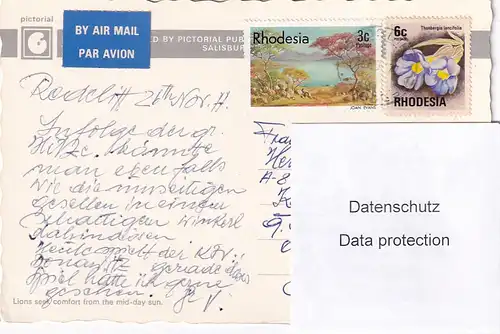 pictorial
BY AIR MAIL
PAR AVION
ED BY PICTORIAL PUB
SALISBUR
Rhodesia
3c
Postage
JOAN EVANS
6c
Thunbergia lancifolia
RHODESIA
Redcliff Nov.
Infolge der gr.
Hitze könnte
man ebenfalls
wie die umseitigen
gesellen in einem
schattigen Winkerl
dahindösen
Heute spielt der KSV.
gerade dies
Spiel hätte ich gerne
gesehen.
Lions seek comfort from the mid-day sun.
Fra
Her
A-8
Datenschutz
Data protection